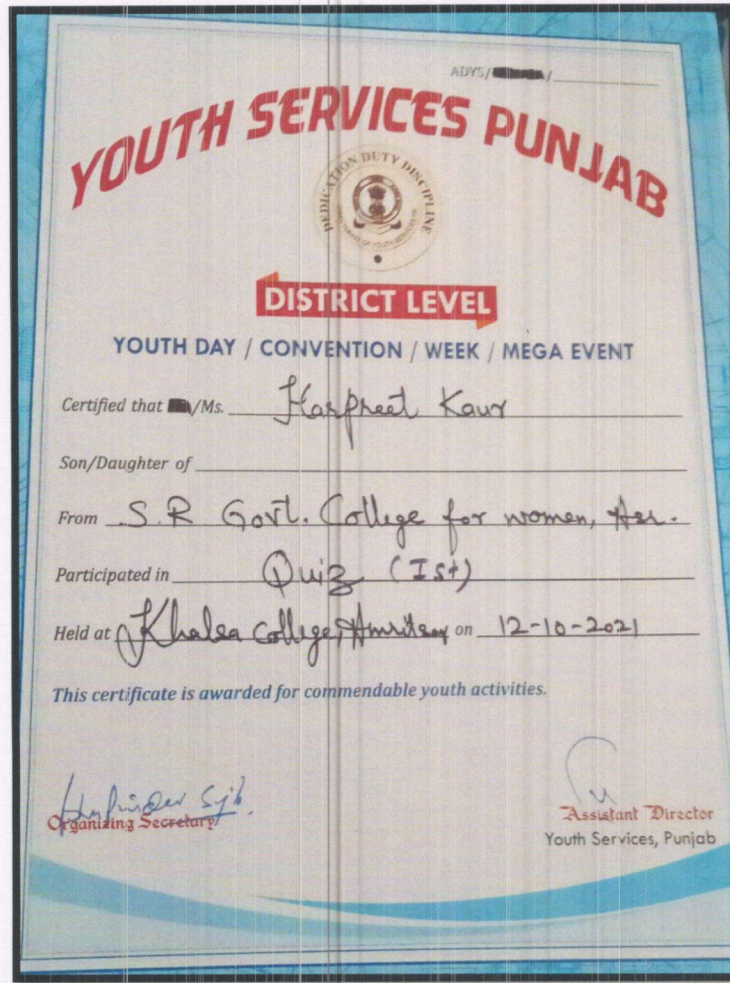 ADYS/ /
YOUTH SERVICES PUNJAB
DEDICATION DUTY DISCIPLINE
DISTRICT LEVEL
YOUTH DAY / CONVENTION / WEEK / MEGA EVENT
Certified that /Ms. Harpreet Kaur
Son/Daughter of
From S.R Govt. College for women, Asr.
Participated in Quiz (Ist)
Held at Khalsa College, Amritsar on 12-10-2021
This certificate is awarded for commendable youth activities.
Organizing Secretary
Assistant Director
Youth Services, Punjab